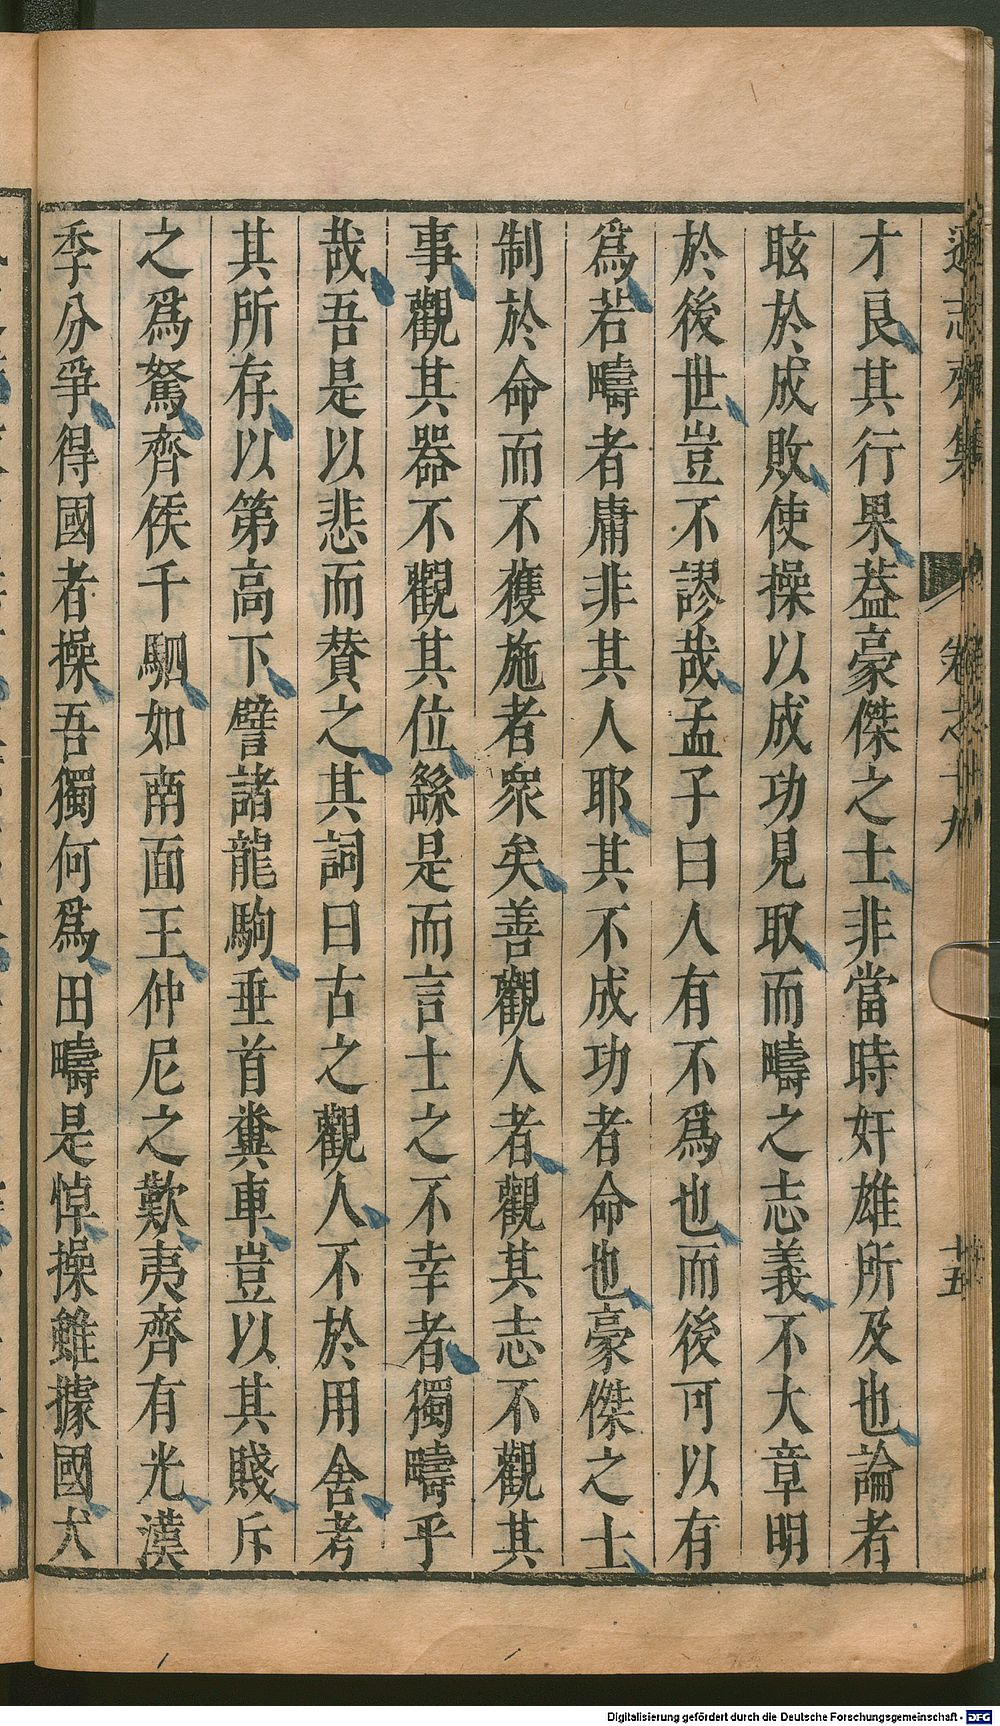 遜志齋集
卷之十九
十五
才良其行果葢豪傑之士非當時奸雄所及也論者
眩於成敗使操以成功見取而疇之志義不大章明
於後世豈不謬哉孟子曰人有不爲也而後可以有
爲若疇者庸非其人耶其不成功者命也豪傑之士
制於命而不獲施者衆矣善觀人者觀其志不觀其
事觀其器不觀其位繇是而言士之不幸者獨疇乎
哉吾是以悲而賛之其詞曰古之觀人不於用舍考
其所存以第高下譬諸龍駒垂首糞車豈以其賤斥
之爲駑齊侯千駟如南面王仲尼之歎夷齊有光漢
季分爭得國者操吾獨何爲田疇是悼操雖據國犬
Digitalisierung gefördert durch die Deutsche Forschungsgemeinschaft - DFG